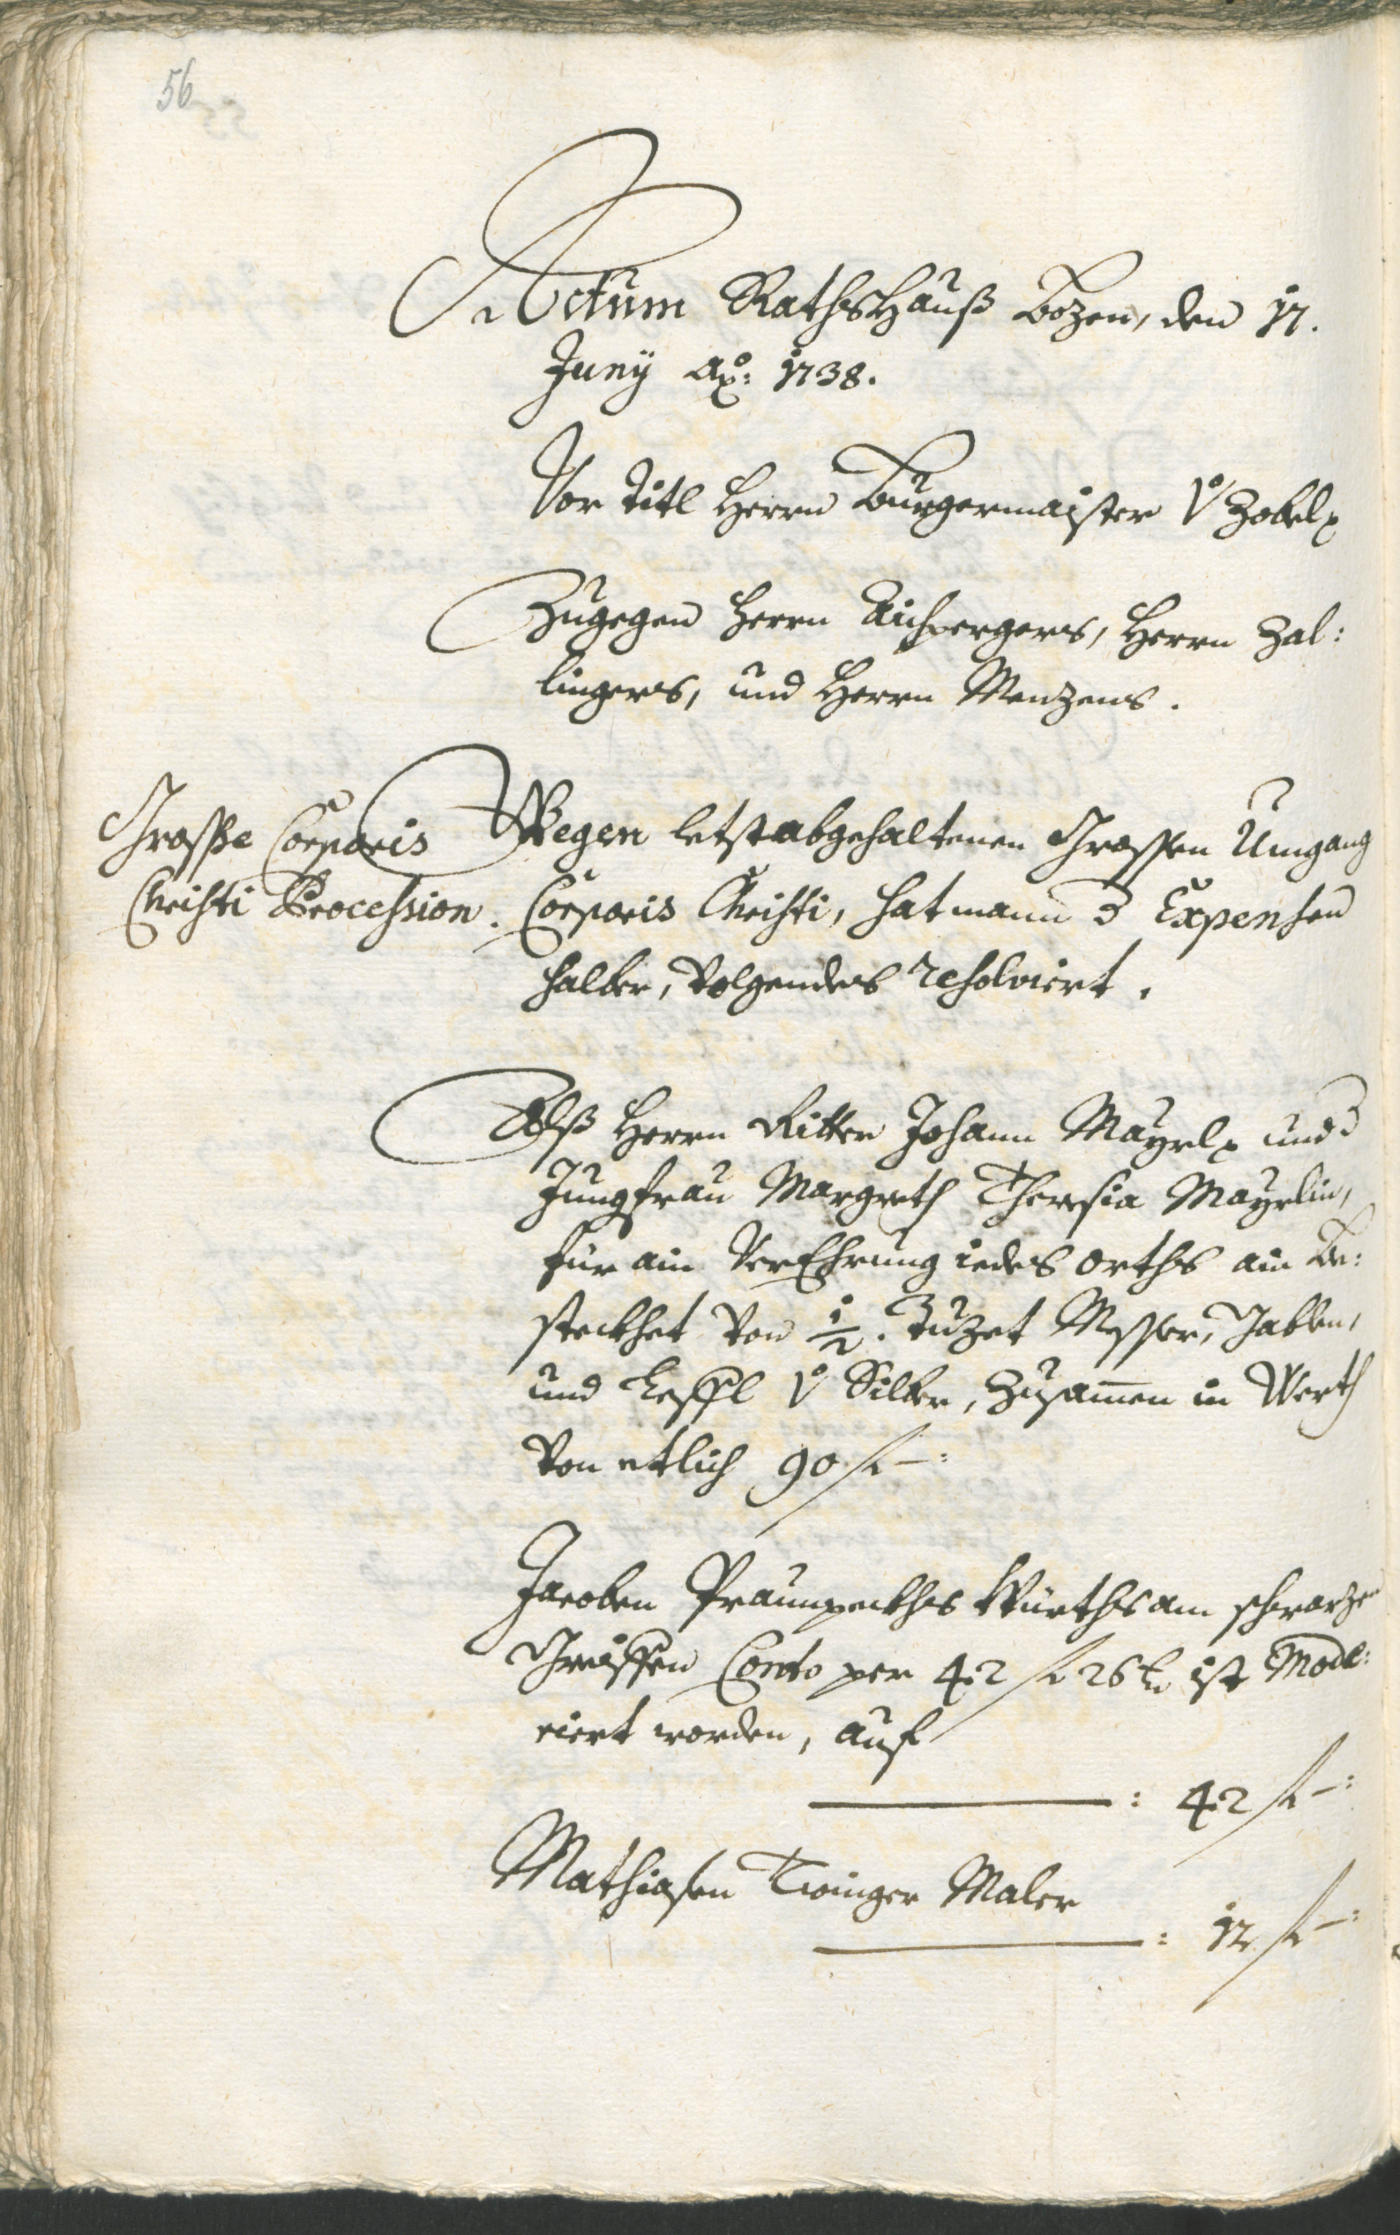 56
Actum RathsHauß Bozen, den 17.
Juny ao: 1738.
Vor Titl Herrn Burgermaister v Zobel
Zugegen Herrn Aichpergers, Herrn Zal:
lingers, und Herrn Menzens.
Grosse Corporis
Christi Procession.
Wegen letstabgehaltenen Grossen Umgang
Corporis Christi, hat mann d Expensen
halber, volgendes resolviert.
Alß Herrn Ritter Johann Mayrl und
Jungfrau Margreth Theresia Mayrlin,
für ain VerEhrung iedes orths ain Be:
steckhet von 1/2. Duzet Messer, Gabln,
und Leffl v Silber, Zusamen in Werth
von etlich 90 f –:
Jacoben Praunpeckhs Würths am schwarzen
Greiffen Conto per 42 f 26 kr ist Mode:
riert worden, auf
: 42 f –:
Mathiasen Twinger Maler
: 12 f –: